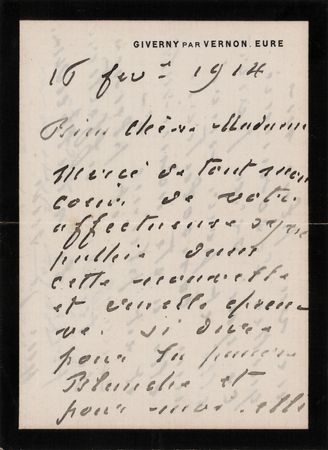 GIVERNY PAR VERNON. EURE
16 fev. 1914
Bien chère Madame
Merci de tout mon
coeur de votre
affectueuse sym
pathie dans
cette nouvelle
et cruelle épreu
ve. si dure
pour la pauvre
Blanche et
pour moi. elle